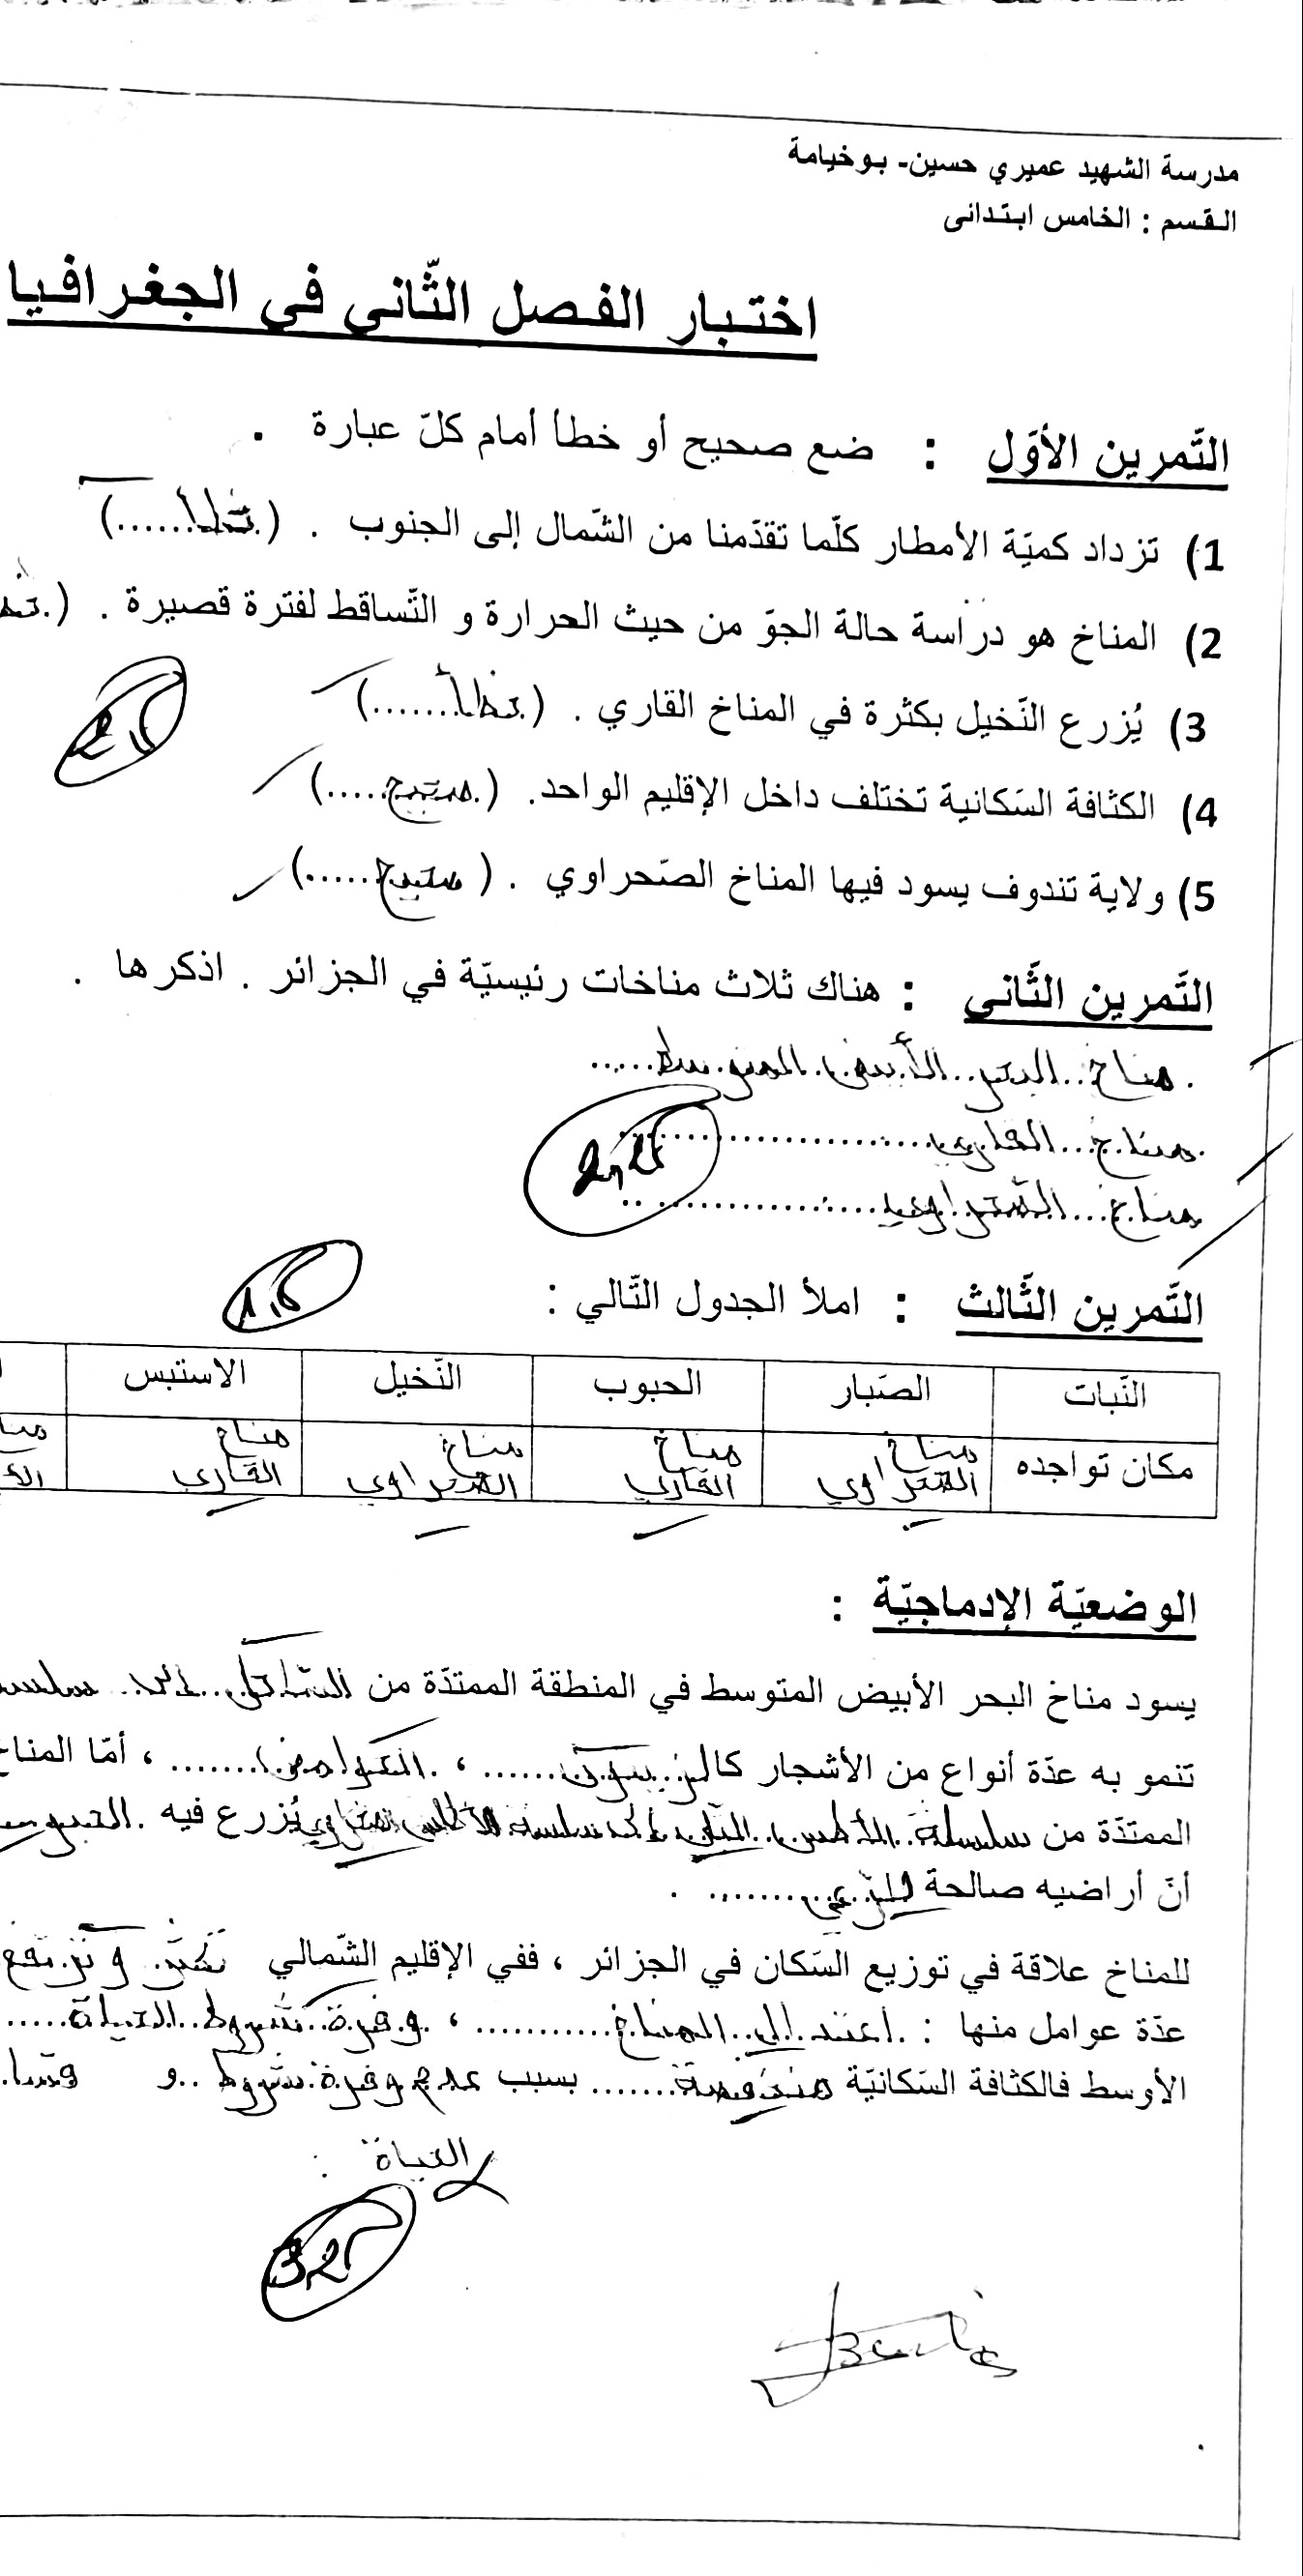 مدرسة الشهيد عميري حسين- بوخيامة
القسم : الخامس ابتدائي
اختبار الفصل الثّاني في الجغرافيا
التّمرين الأوّل : ضع صحيح أو خطأ أمام كلّ عبارة .
1) تزداد كميّة الأمطار كلّما تقدّمنا من الشّمال إلى الجنوب . (خطأ......)
2) المناخ هو دراسة حالة الجوّ من حيث الحرارة و التّساقط لفترة قصيرة . (
3) يُزرع النّخيل بكثرة في المناخ القاري . (خطأ.......)
2,5
4) الكثافة السّكانية تختلف داخل الإقليم الواحد. (صحيح......)
5) ولاية تندوف يسود فيها المناخ الصّحراوي . (صحيح......)
التّمرين الثّاني : هناك ثلاث مناخات رئيسيّة في الجزائر . اذكرها .
مناخ البحر الأبيض المتوسط
مناخ القاري
2,25
مناخ الصّحراوي
التّمرين الثّالث : املأ الجدول التّالي :
1,5
النّبات الصّبار الحبوب النّخيل الاستبس
مكان تواجده مناخ الصّحراوي مناخ القاري مناخ الصحراوي مناخ القاري
الوضعيّة الإدماجيّة :
يسود مناخ البحر الأبيض المتوسط في المنطقة الممتدّة من السّاحل إلى
تنمو به عدّة أنواع من الأشجار كالزيتون...... ، الحوامض....... ، أمّا المناخ
الممتدّة من سلسلة الأطلس التلي إلى سلسلة الأطلس الصحراوي يُزرع فيه الحبوب
أنّ أراضيه صالحة للرّعي .
للمناخ علاقة في توزيع السّكان في الجزائر ، ففي الإقليم الشّمالي تكثر و ترتفع
عدّة عوامل منها : اعتدال المناخ........... ، وفرة شروط الحياة.....
الأوسط فالكثافة السّكانيّة منخفضة...... بسبب عدم وفرة شروط .. و
الحياة .
3,25